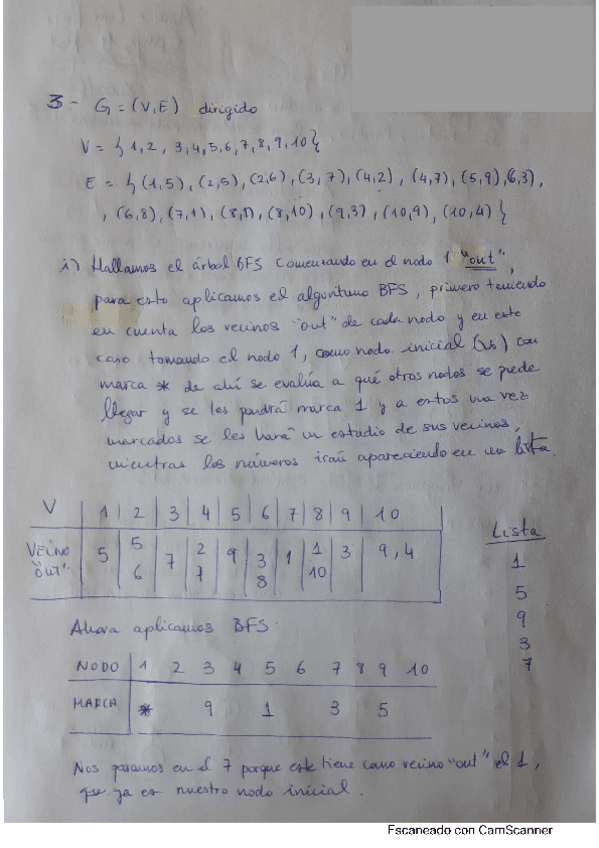 3- G = (V,E) dirigido
V = { 1, 2, 3, 4, 5, 6, 7, 8, 9, 10}
E = { (1,5), (2,5), (2,6), (3, 7), (4,2), (4,7), (5,9), (6,3),
, (6,8), (7,1), (8,1), (8,10), (9,3), (10,9), (10,4) }
i) Hallamos el árbol BFS comentando en el nodo 1 "out",
para esto aplicamos el algoritmo BFS, primero teniendo
en cuenta los vecinos "out" de cada nodo y en este
caso tomando el nodo 1, como nodo inicial (vs) con
marca * de ahí se evalúa a qué otros nodos se puede
llegar y se les pondrá marca 1 y a estos una vez
marcados se les hará un estudio de sus vecinos,
mientras los números irán apareciendo en una lista.
V 1 2 3 4 5 6 7 8 9 10
VECINO "OUT" 5 5 6 7 2 7 9 3 8 1 1 10 3 9, 4
Lista
1
5
9
3
7
Ahora aplicamos BFS:
NODO 1 2 3 4 5 6 7 8 9 10
MARCA * 9 1 3 5
Nos paramos en el 7 porque este tiene como vecino "out" el 1,
que ya es nuestro nodo inicial.
Escaneado con CamScanner